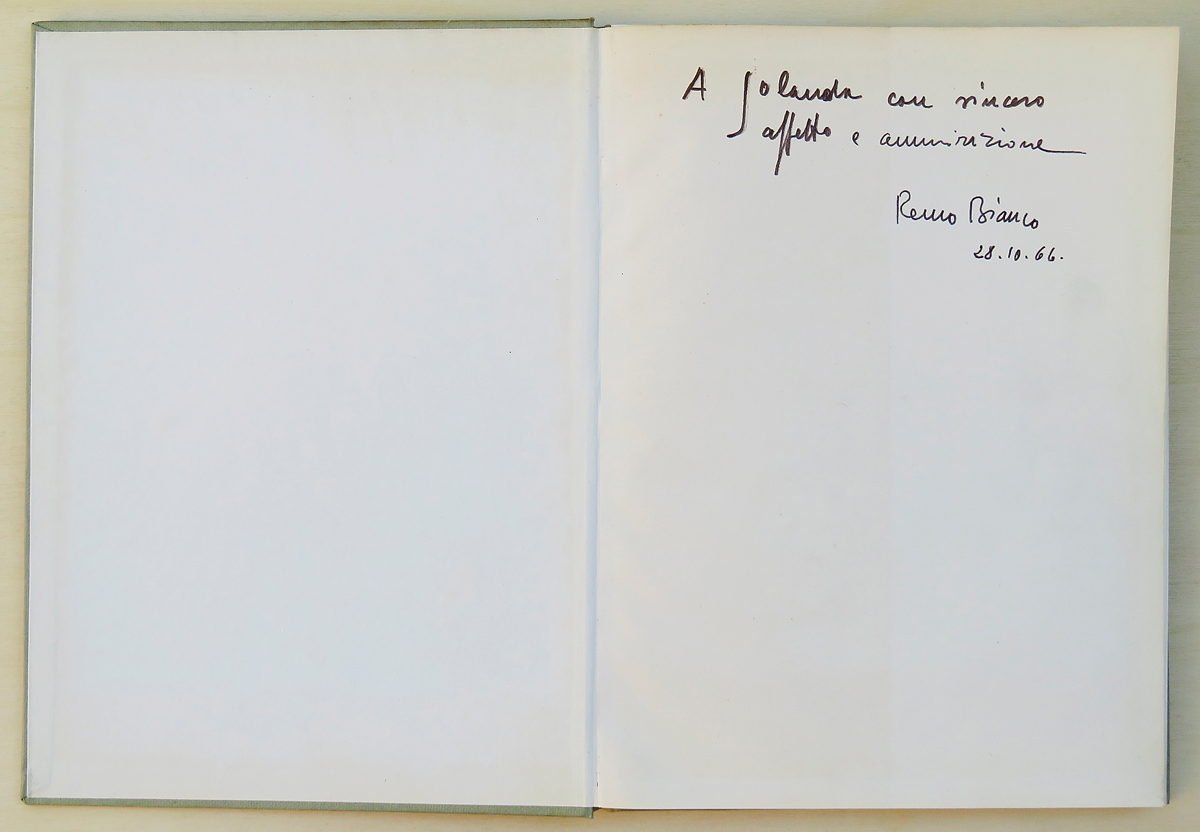 A Jolanda con sincero
affetto e ammirazione
Remo Bianco
28.10.66.